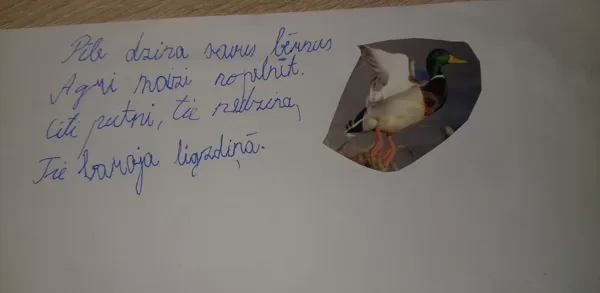 Pīle dzina savus bērnus
Agri maizi nopelnīt.
Citi putni, tie nedzina,
Tie baroja ligzdiņā.